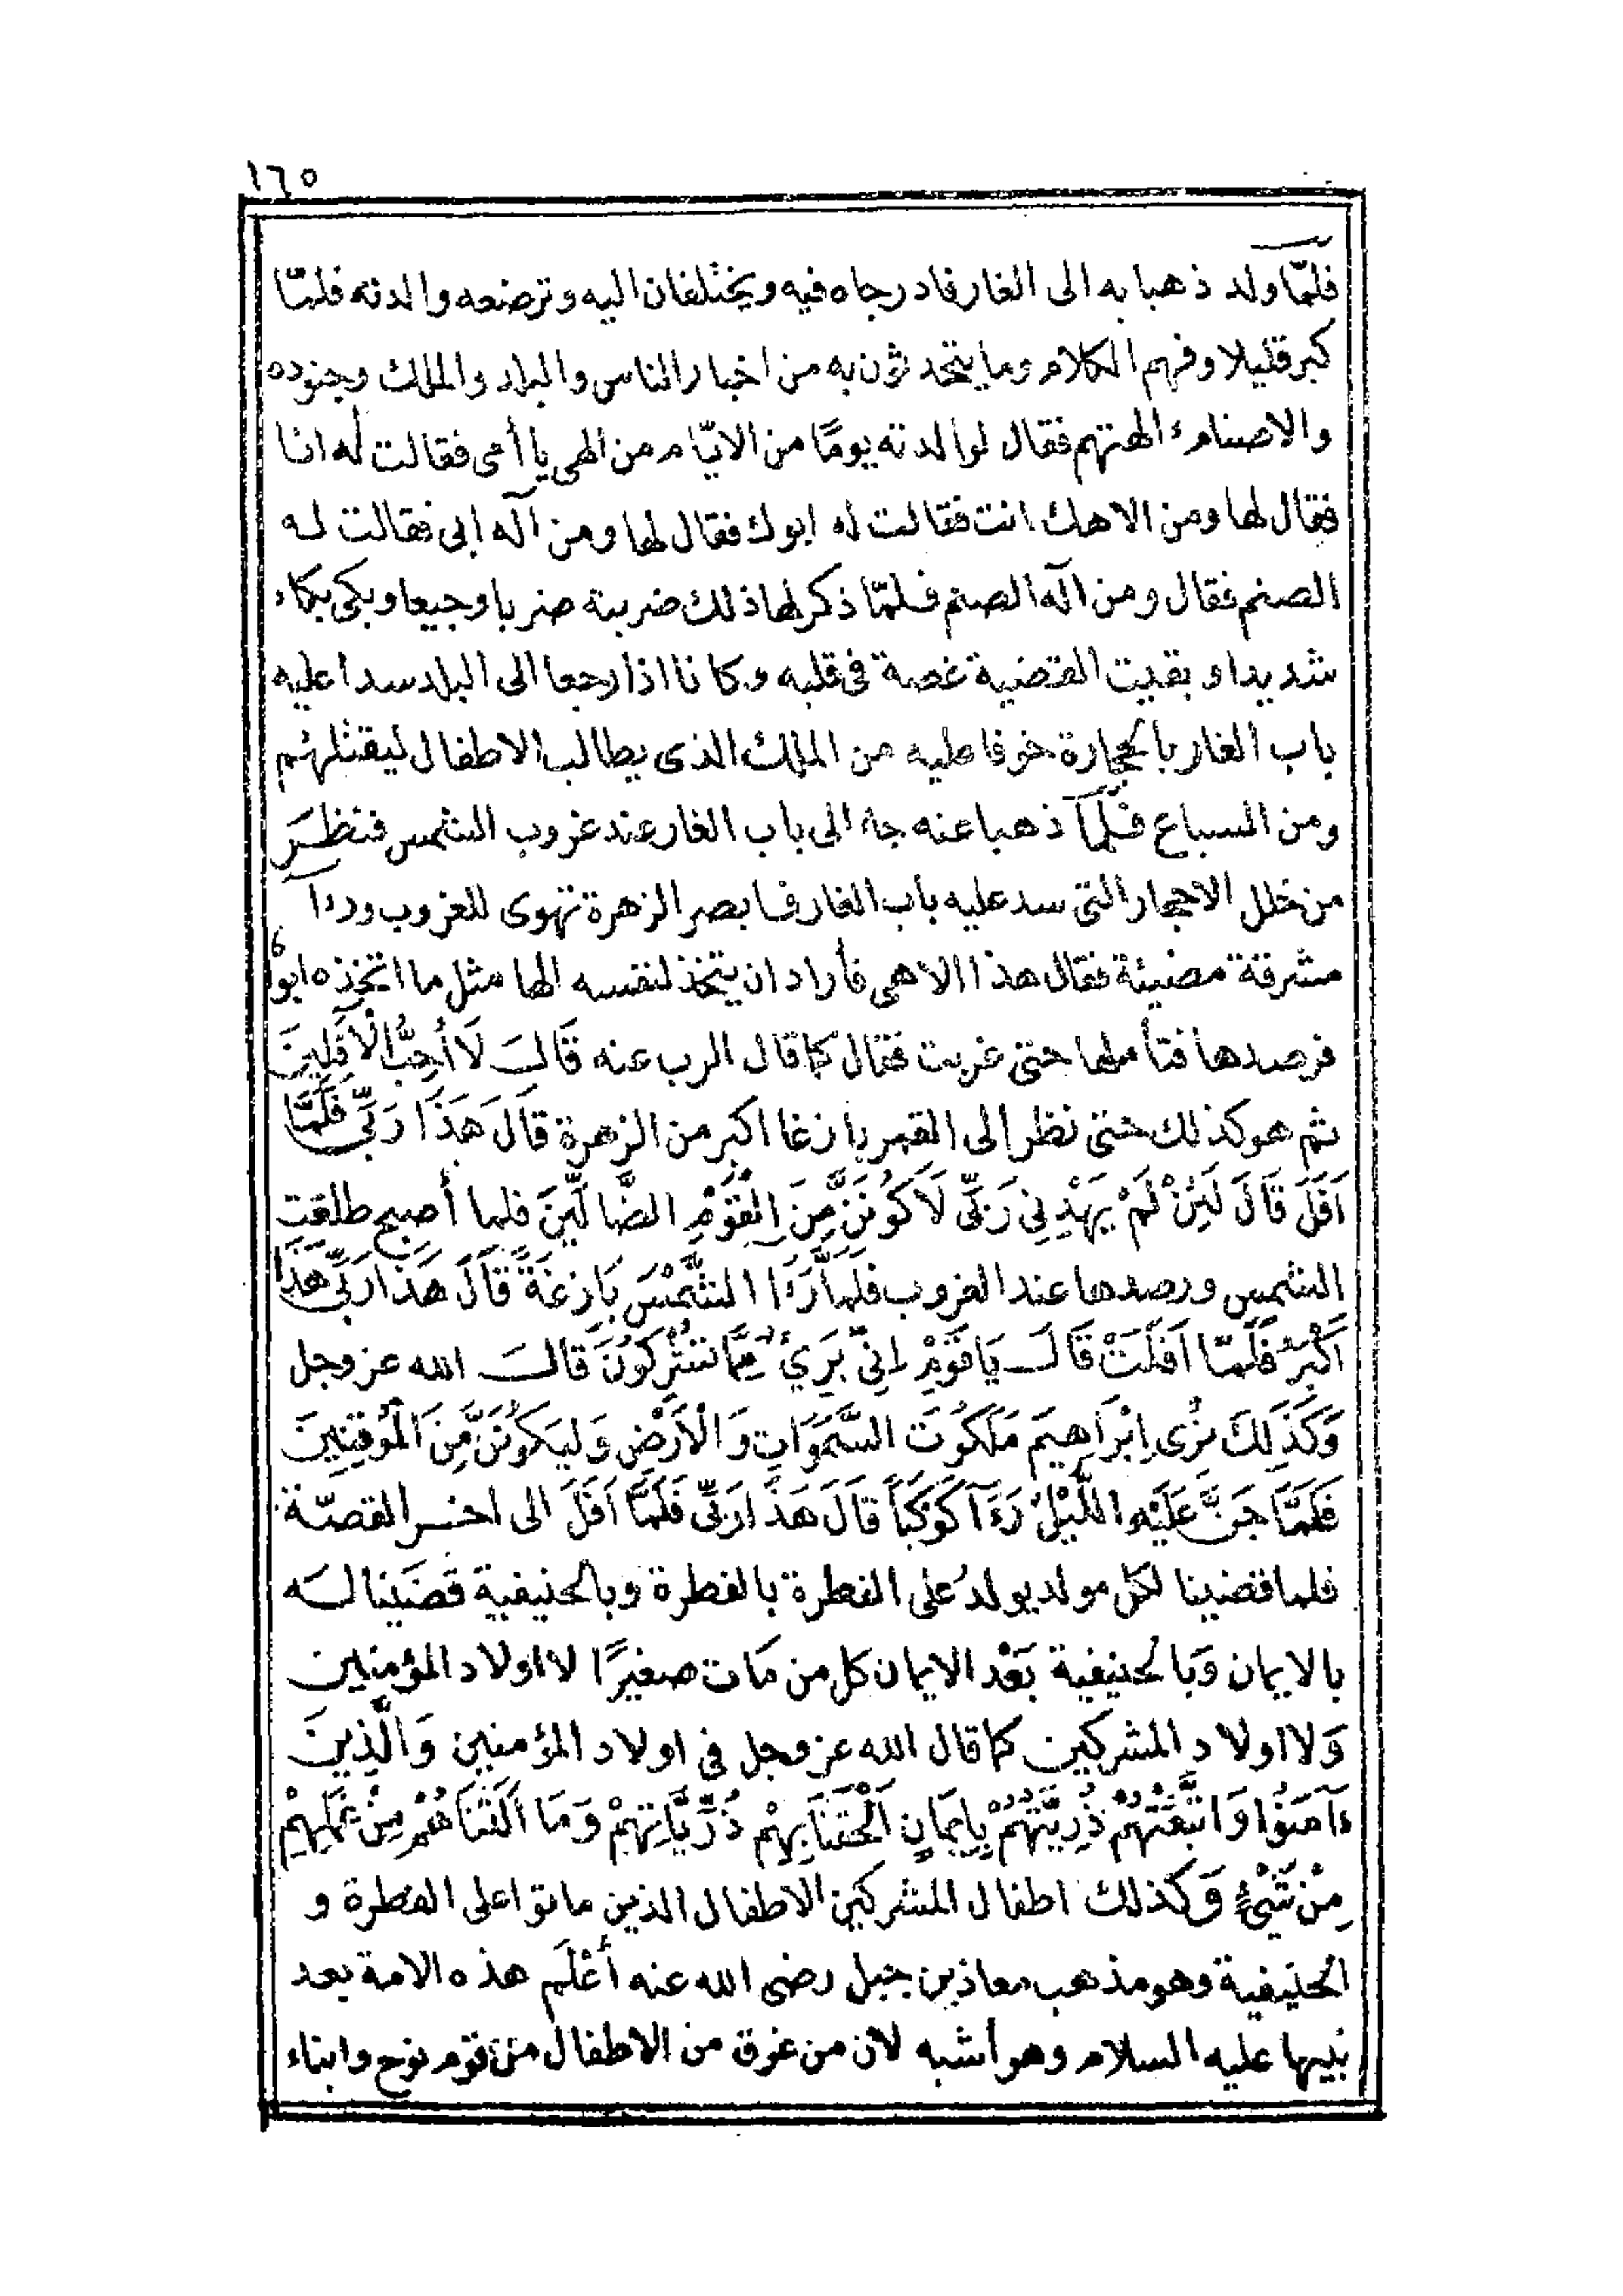 ١٦٥
فلمّا ولد ذهبا به الى الغار فادرجاه فيه ويختلفان اليه وترضعه والدته فلمّا
كبر قليلا وفهم الكلام وما يتحدثون به من اخبار الناس والبلد والملك وجنوده
والاصنام ءالهتهم فقال لوالدته يومًا من الايّام من الهى يا أمى فقالت له انا
فقال لها ومن الاهك انت فقالت له ابوك فقال لها ومن آله ابى فقالت له
الصنم فقال ومن آله الصنم فلمّا ذكر لها ذلك ضربته ضربا وجيعا وبكى بكاء
شديدا وبقيت القضية غصة فى قلبه وكانا اذا رجعا الى البلد سدا عليه
باب الغار بالحجارة خوفا عليه من الملك الذى يطالب الاطفال ليقتلهم
ومن السباع فلمّا ذهبا عنه جاء الى باب الغار عند غروب الشمس فنظَرَ
من خلل الاحجار التى سد عليه باب الغار فابصر الزهرة تهوى للغروب ورءا
مشرقة مضيئة فقال هذا الاهى فأراد ان يتخذ لنفسه الها مثل ما اتخذه ابوْاه
فرصدها فتأملها حتى غربت فقال كما قال الرب عنه قَالَ لَا أُحِبُّ الْآفِلِينَ
ثم هو كذلك حتى نظر الى القمر بازغا اكبر من الزهرة قَالَ هَذَا رَبِّى فَلَمَّا
اَفَلَ قَالَ لَئِنْ لَمْ يَهْدِنِى رَبِّى لَاَكُونَنَّ مِنَ الْقَوْمِ الضَّالِّينَ فلما أصبح طلعت
الشمس ورصدها عند الغروب فَلَمَّا رَءَا الشَّمْسَ بَازِغَةً قَالَ هَذَا رَبِّى هَذَا
اَكْبَرُ فَلَمّا اَفَلَتْ قَالَ يَا قَوْمِ اِنِّى بَرِيءٌ مِمَّا تُشْرِكُونَ قَالَ الله عز وجل
وَكَذَلِكَ نُرِى اِبْرَاهِيمَ مَلَكُوتَ السَّمَوَاتِ وَالْاَرْضِ وَلِيَكُونَ مِنَ الْمُوقِنِينَ
فَلَمَّا جَنَّ عَلَيْهِ اللَّيْلُ رَءَآ كَوْكَبًا قَالَ هَذَا رَبِّى فَلَمَّا اَفَلَ الى اخر القصّة
فلما قضينا لكل مولد يولد على الفطرة بالفطرة وبالحنيفية قضَينا له
بالايمان وَبالحنيفية بَعْد الايمان كل من مَات صغيرًا لا اولاد المؤمنين
وَلا اولاد المشركين كما قال الله عز وجل فى اولاد المؤمنين وَالَّذِينَ
ءَآمَنُوا وَاتَّبَعَتْهُمْ ذُرِّيَّتُهُمْ بِاِيمَانٍ اَلْحَقْنَا بِهِمْ ذُرِّيَّاتِهِمْ وَمَا اَلَتْنَاهُمْ مِنْ عَمَلِهِمْ
مِنْ شَيْءٍ وَكذلك اطفال المشركين الاطفال الذين ماتوا على الفطرة و
الحنيفية وهو مذهب معاذ بن جبل رضى الله عنه أعْلَم هذه الامة بعد
نبيها عليه السلام وهو أشبه لان من غرق من الاطفال من قوم نوح وابناء